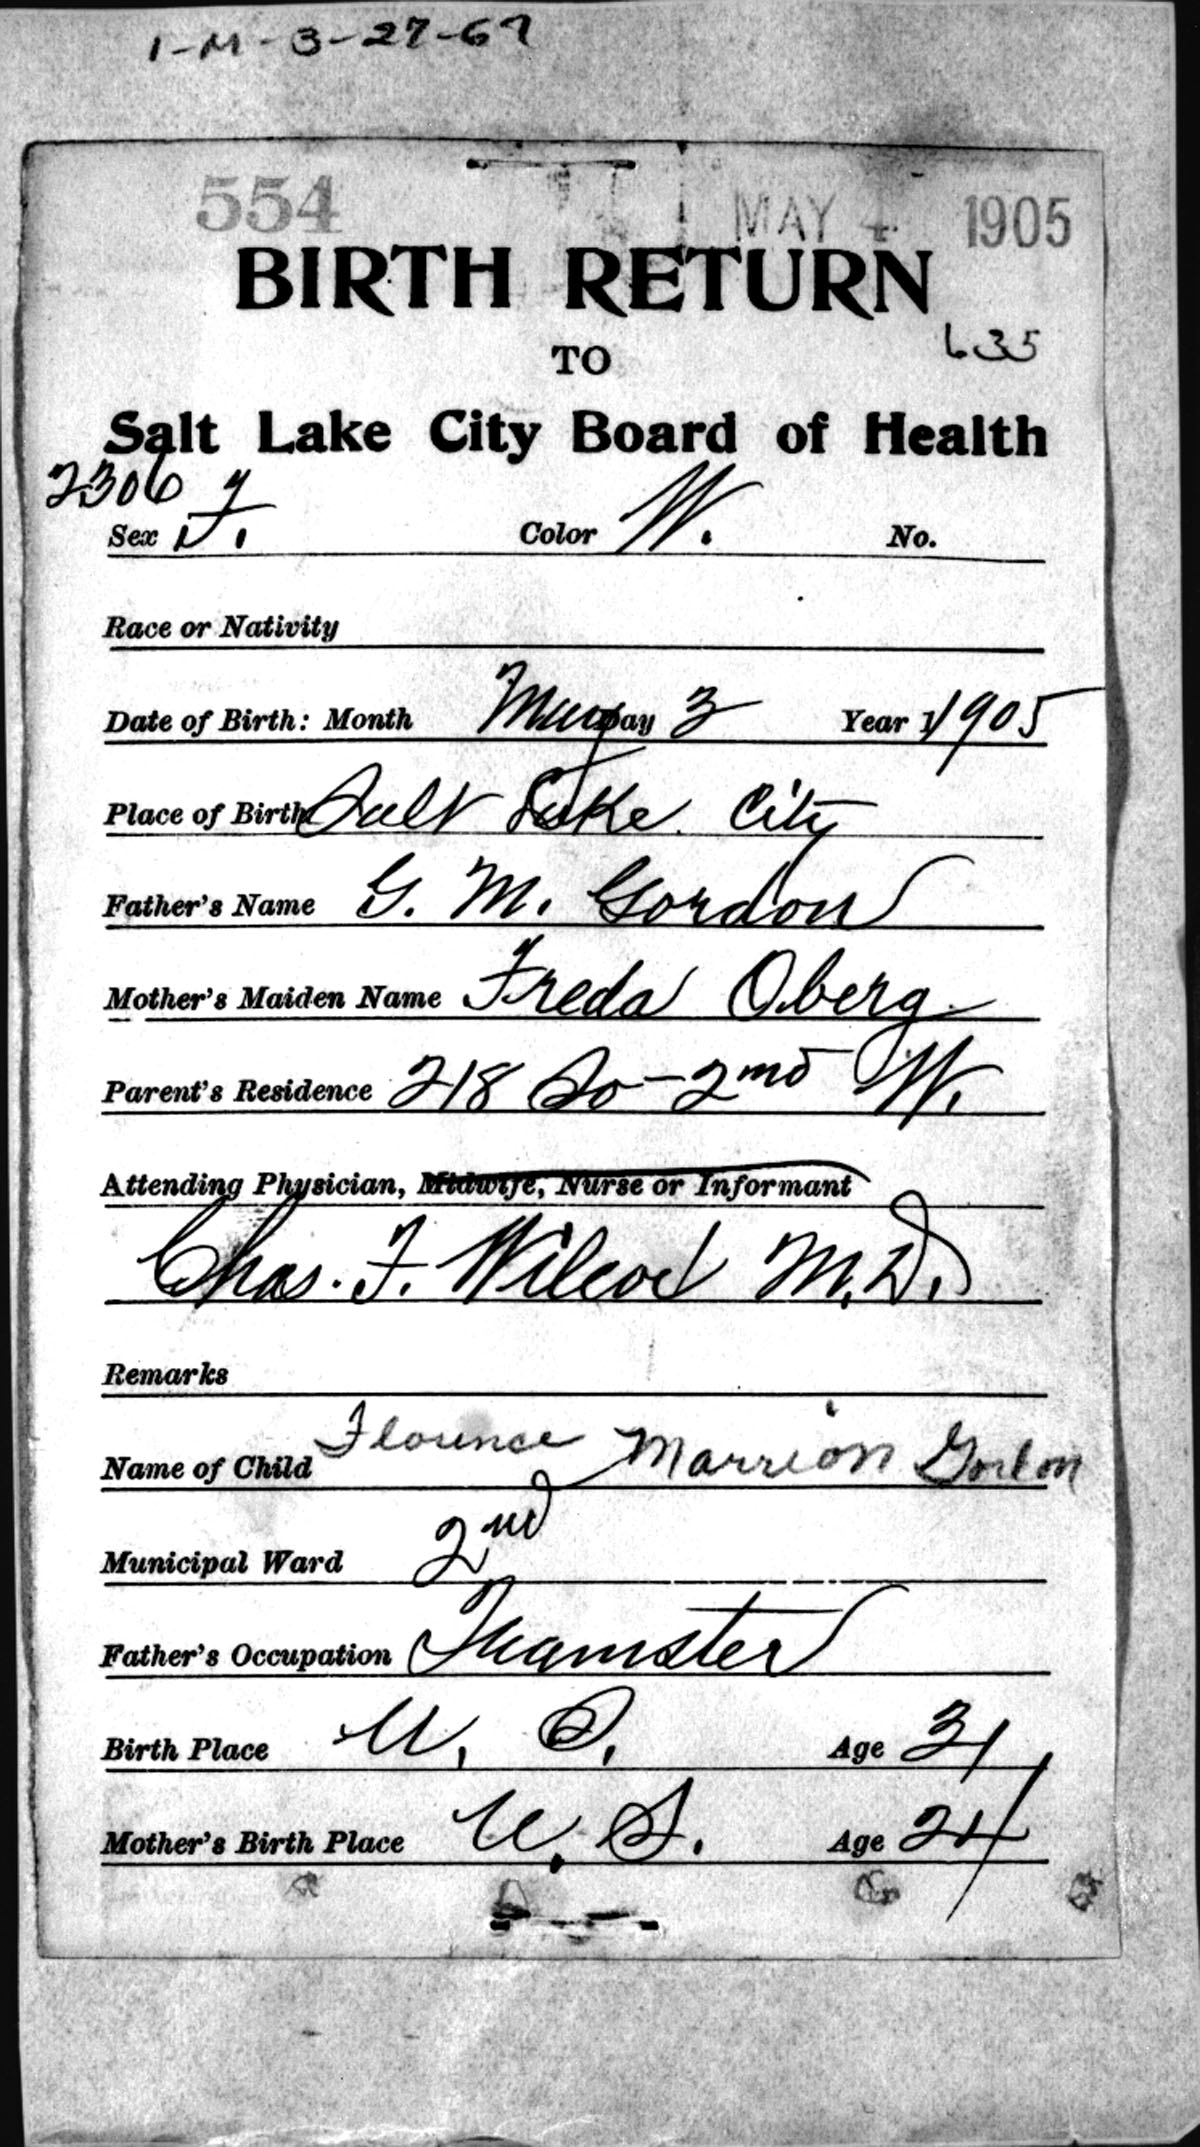 1-M-3-27-67
554 MAY 4 1905
BIRTH RETURN
TO 635
Salt Lake City Board of Health
2306
Sex F. Color W. No.
Race or Nativity
Date of Birth: Month May Day 3 Year 1905
Place of Birth Salt Lake City
Father's Name G. M. Gordon
Mother's Maiden Name Freda Oberg
Parent's Residence 218 So - 2nd W.
Attending Physician, Midwife, Nurse or Informant
Chas. F. Wilcox M.D.
Remarks
Name of Child Florence Marrion Gordon
Municipal Ward 2nd
Father's Occupation Teamster
Birth Place U. S. Age 31
Mother's Birth Place U. S. Age 24